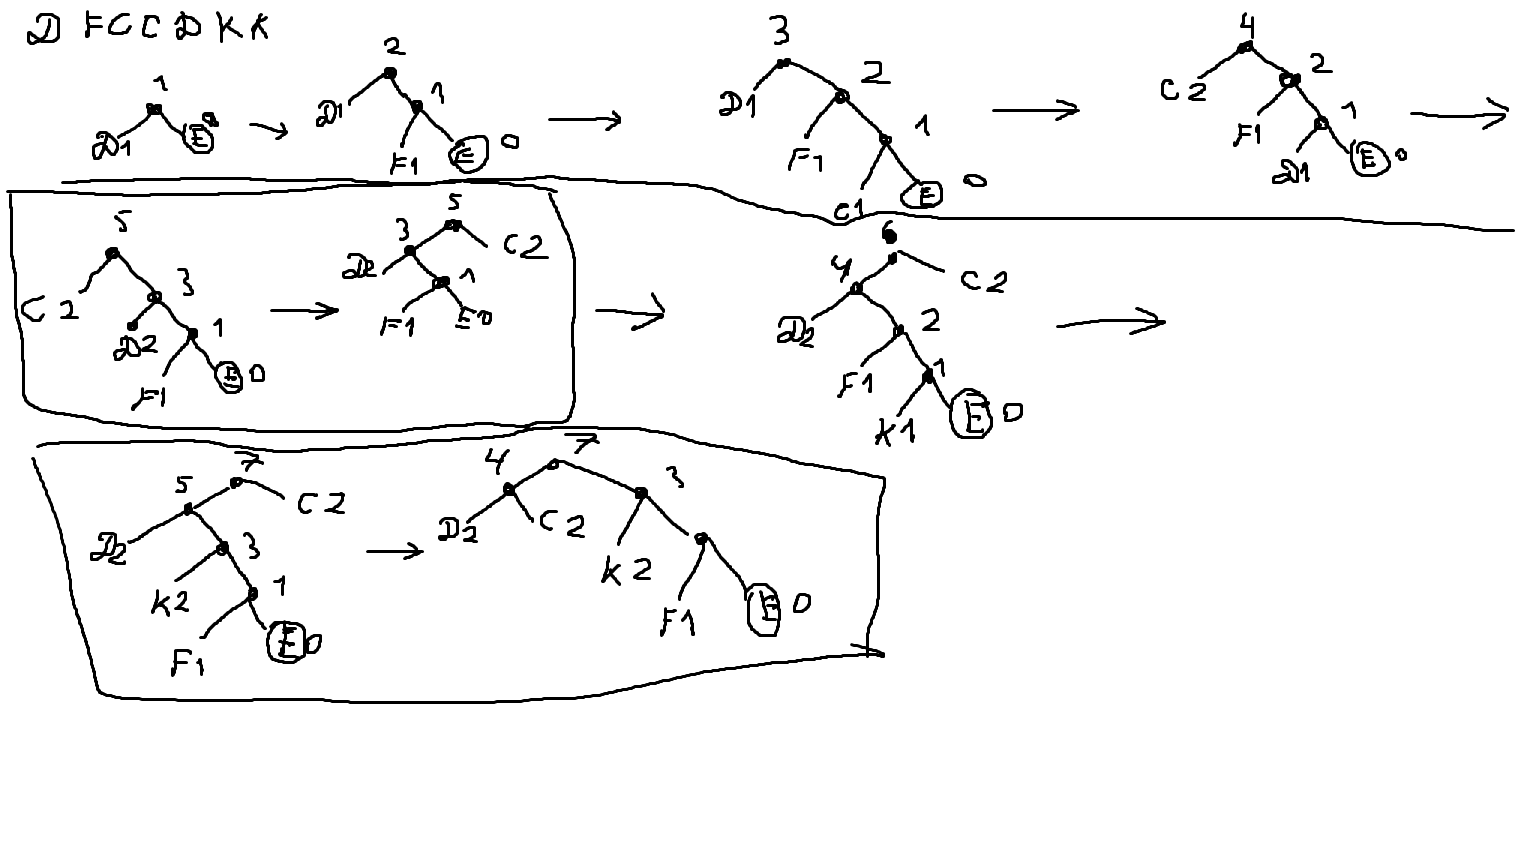 D F C C D K K
1
D1 E 0
2
D1 1
F1 E 0
3
D1 2
F1 1
C1 E 0
4
C2 2
F1 1
D1 E 0
5
C2 3
D2 1
F1 E 0
5
3 C2
D2 1
F1 E0
6
4 C2
D2 2
F1 1
K1 E 0
7
5 C2
D2 3
K2 1
F1 E 0
7
4 3
D2 C2 K2
F1 E 0